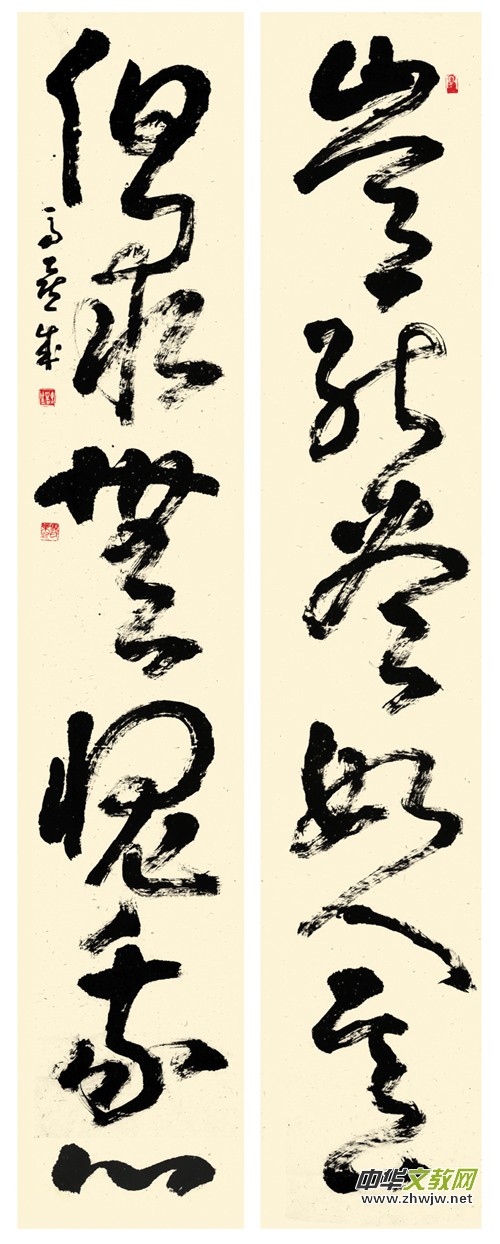 豈能盡如人意
但求無愧我心
中华文教网
www.zhwjw.net